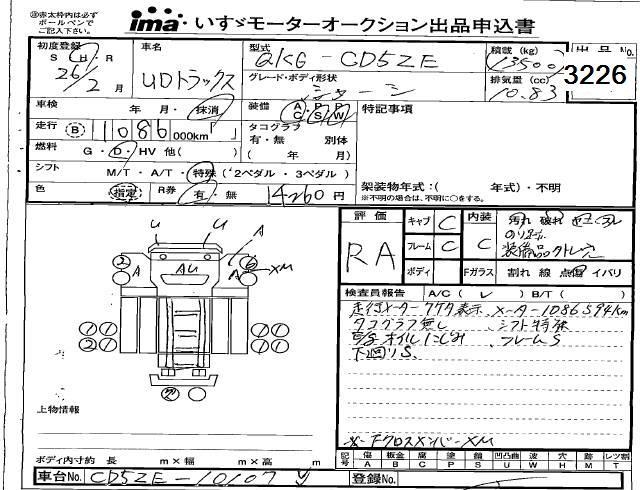 ㊟赤太枠内は必ず
ボールペンで
ご記入下さい。
ima いすゞモーターオークション出品申込書
初度登録
S・H・R
26年 2月
車名
UDトラックス
型式
QKG-CD5ZE
グレード・ボディ形状
シャーシ
積載 (kg)
13500
排気量 (cc)
10.83
出品No.
3226
車検 年 月・抹消
装備 AC PS PW
特記事項
走行 B 1086 000km「 」
タコグラフ
有・無 別体
( 年 月)
燃料 G・D・HV 他( )
シフト M/T・A/T・特殊 (2ペダル・3ペダル)
色 指定
R券 有・無 14260円
架装物年式:( 年式)・不明
※不明の場合は、不明に○をする。
評価 RA
キャブ C
内装 C
汚れ 破れ
フレーム C
ボディ
Fガラス 割れ 線 点傷 イバリ
検査員報告 A/C( ) B/T( )
走行メーター 表示、メーター1086594km
タコグラフ無し、シフト特殊
オイルにじみ、フレームS
下回りS
U U A A
2 A AU A 6 XM
1 1
2 2
上物情報
クロスメンバーXM
ボディ内寸約 長 m×幅 m×高 m
記号 傷A 板金B 腐C 塗P 錆S 凹凸曲U 波W 穴H 跡M 飛T レツ割
車台No. CD5ZE-10107
登録No.